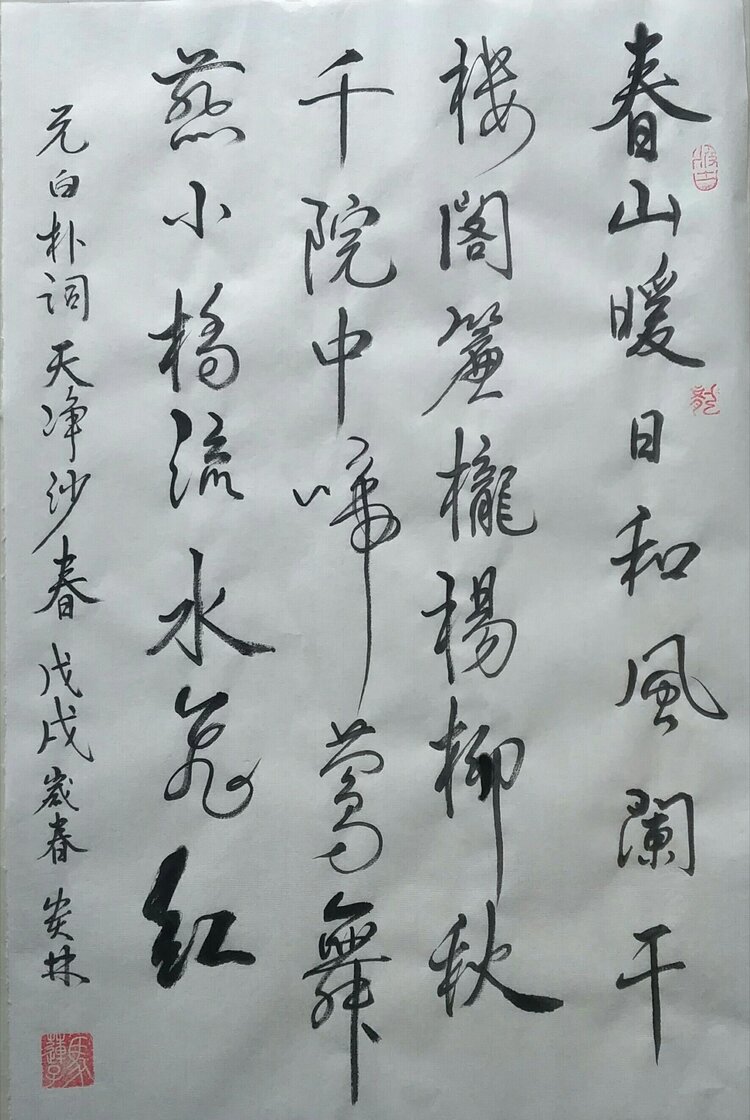 春山暖日和風闌干
樓閣簾櫳楊柳秋
千院中啼鶯舞
燕小橋流水飛紅
元白朴词天净沙春戊戌歲春